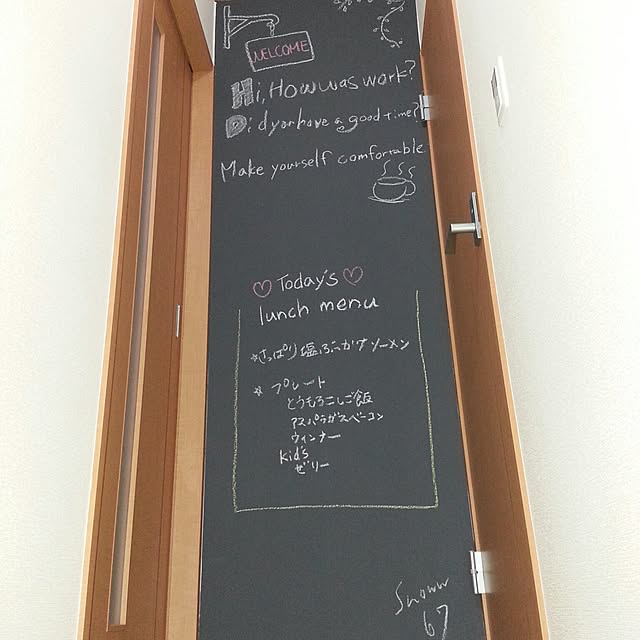 WELCOME
Hi, How was work?
Did you have a good time?
Make yourself comfortable
♡ Today's ♡
lunch menu
☆さっぱり塩ぶっかけソーメン
☆ プレート
とうもろこしご飯
アスパラガスベーコン
ウィンナー
Kid's
ゼリー
Snoww
67